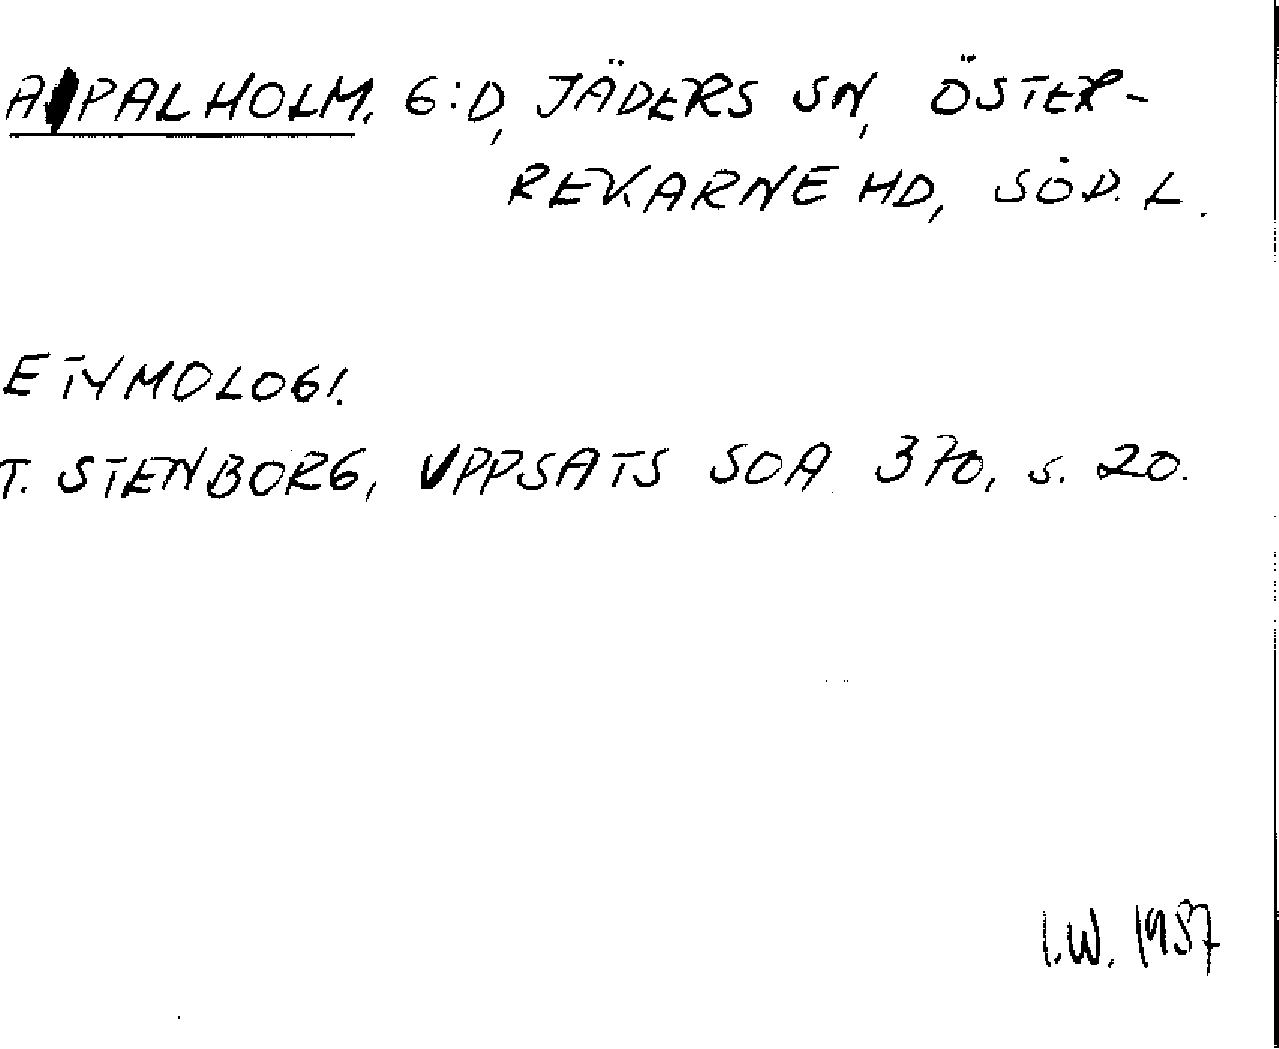 APALHOLM. G:D, JÄDERS SN, ÖSTER-
REKARNE HD, SÖD. L.
ETYMOLOGI.
T. STENBORG, UPPSATS SOA 370, s. 20.
I.W. 1957